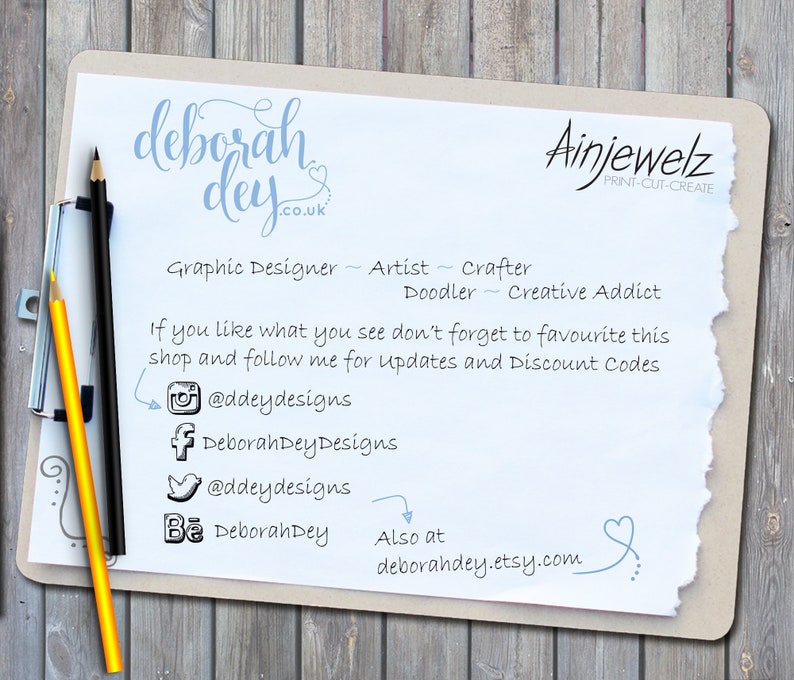 deborah
dey
.co.uk
Ainjewelz
PRINT-CUT-CREATE
Graphic Designer ~ Artist ~ Crafter
Doodler ~ Creative Addict
If you like what you see don't forget to favourite this
shop and follow me for Updates and Discount Codes
@ddeydesigns
DeborahDeyDesigns
@ddeydesigns
Bē DeborahDey
Also at
deborahdey.etsy.com